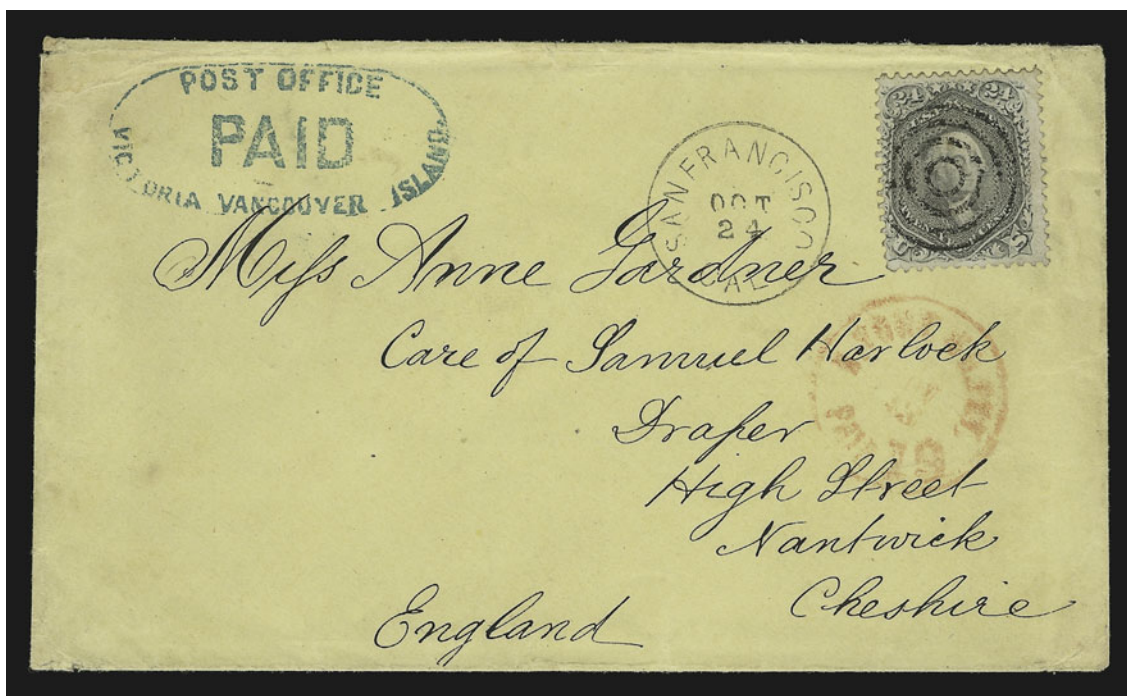 POST OFFICE
PAID
VICTORIA VANCOUVER ISLAND
SAN FRANCISCO
OCT
24
CAL
24 24
U S
Miss Anne Gardner
Care of Samuel Harlock
Draper
High Street
Nantwick
Cheshire
England